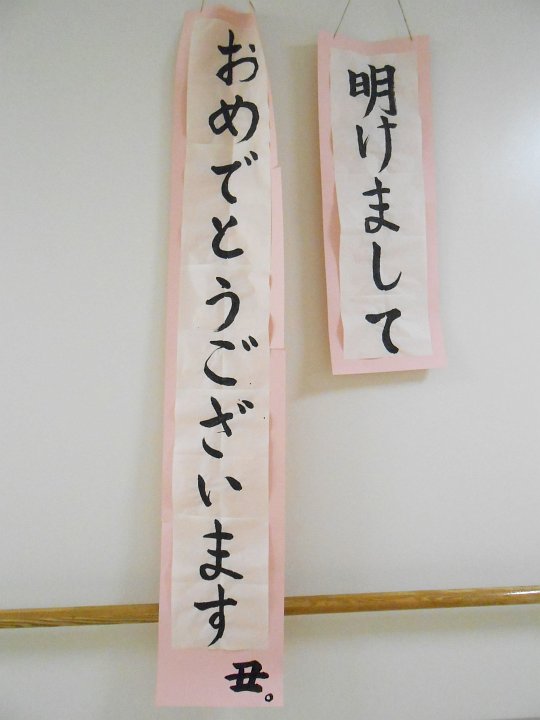 明けまして
おめでとうございます
丑。